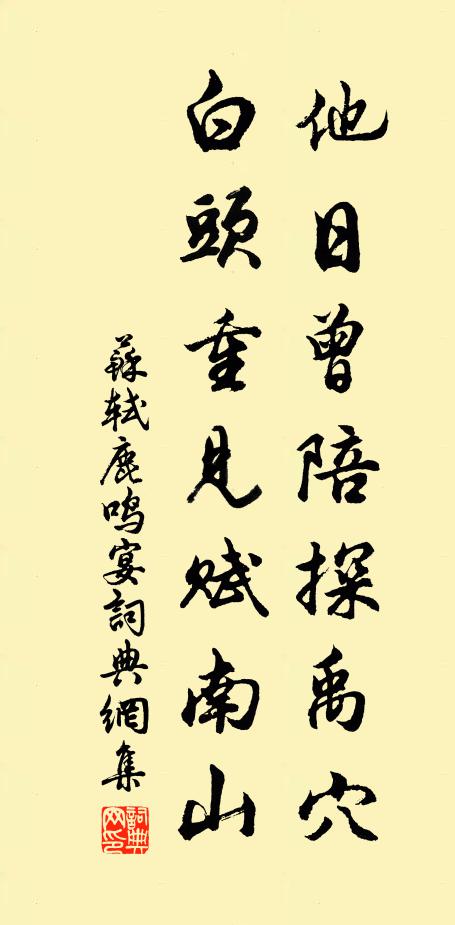 他日曾陪探禹穴
白頭重見賦南山
蘇軾鹿鳴宴詞典網集
詞典網印